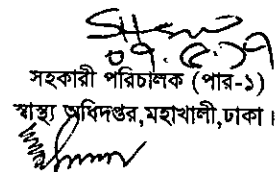 ০৭.৫.১৭
সহকারী পরিচালক (পার-১)
স্বাস্থ্য অধিদপ্তর,মহাখালী,ঢাকা।